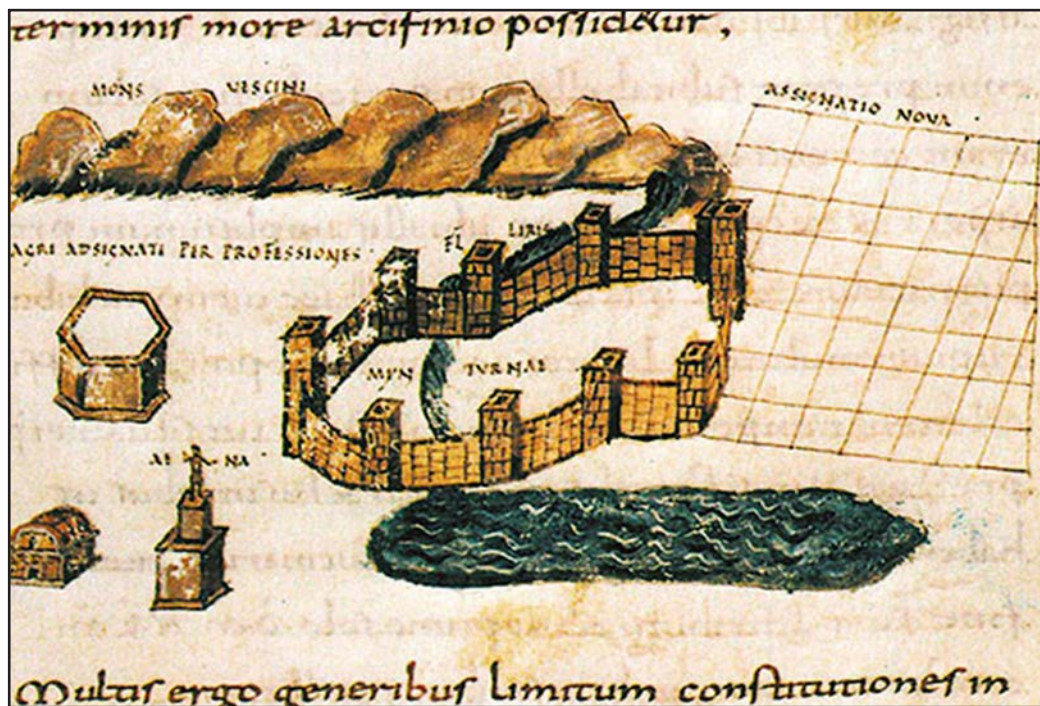 terminis more arcifinio possidetur,
MONS VESCINI
ASSIGNATIO NOVA
AGRI ADSIGNATI PER PROFESSIONES
FL LIRIS
MYN TURNAE
NA
Multis ergo generibus limitum constitutiones in